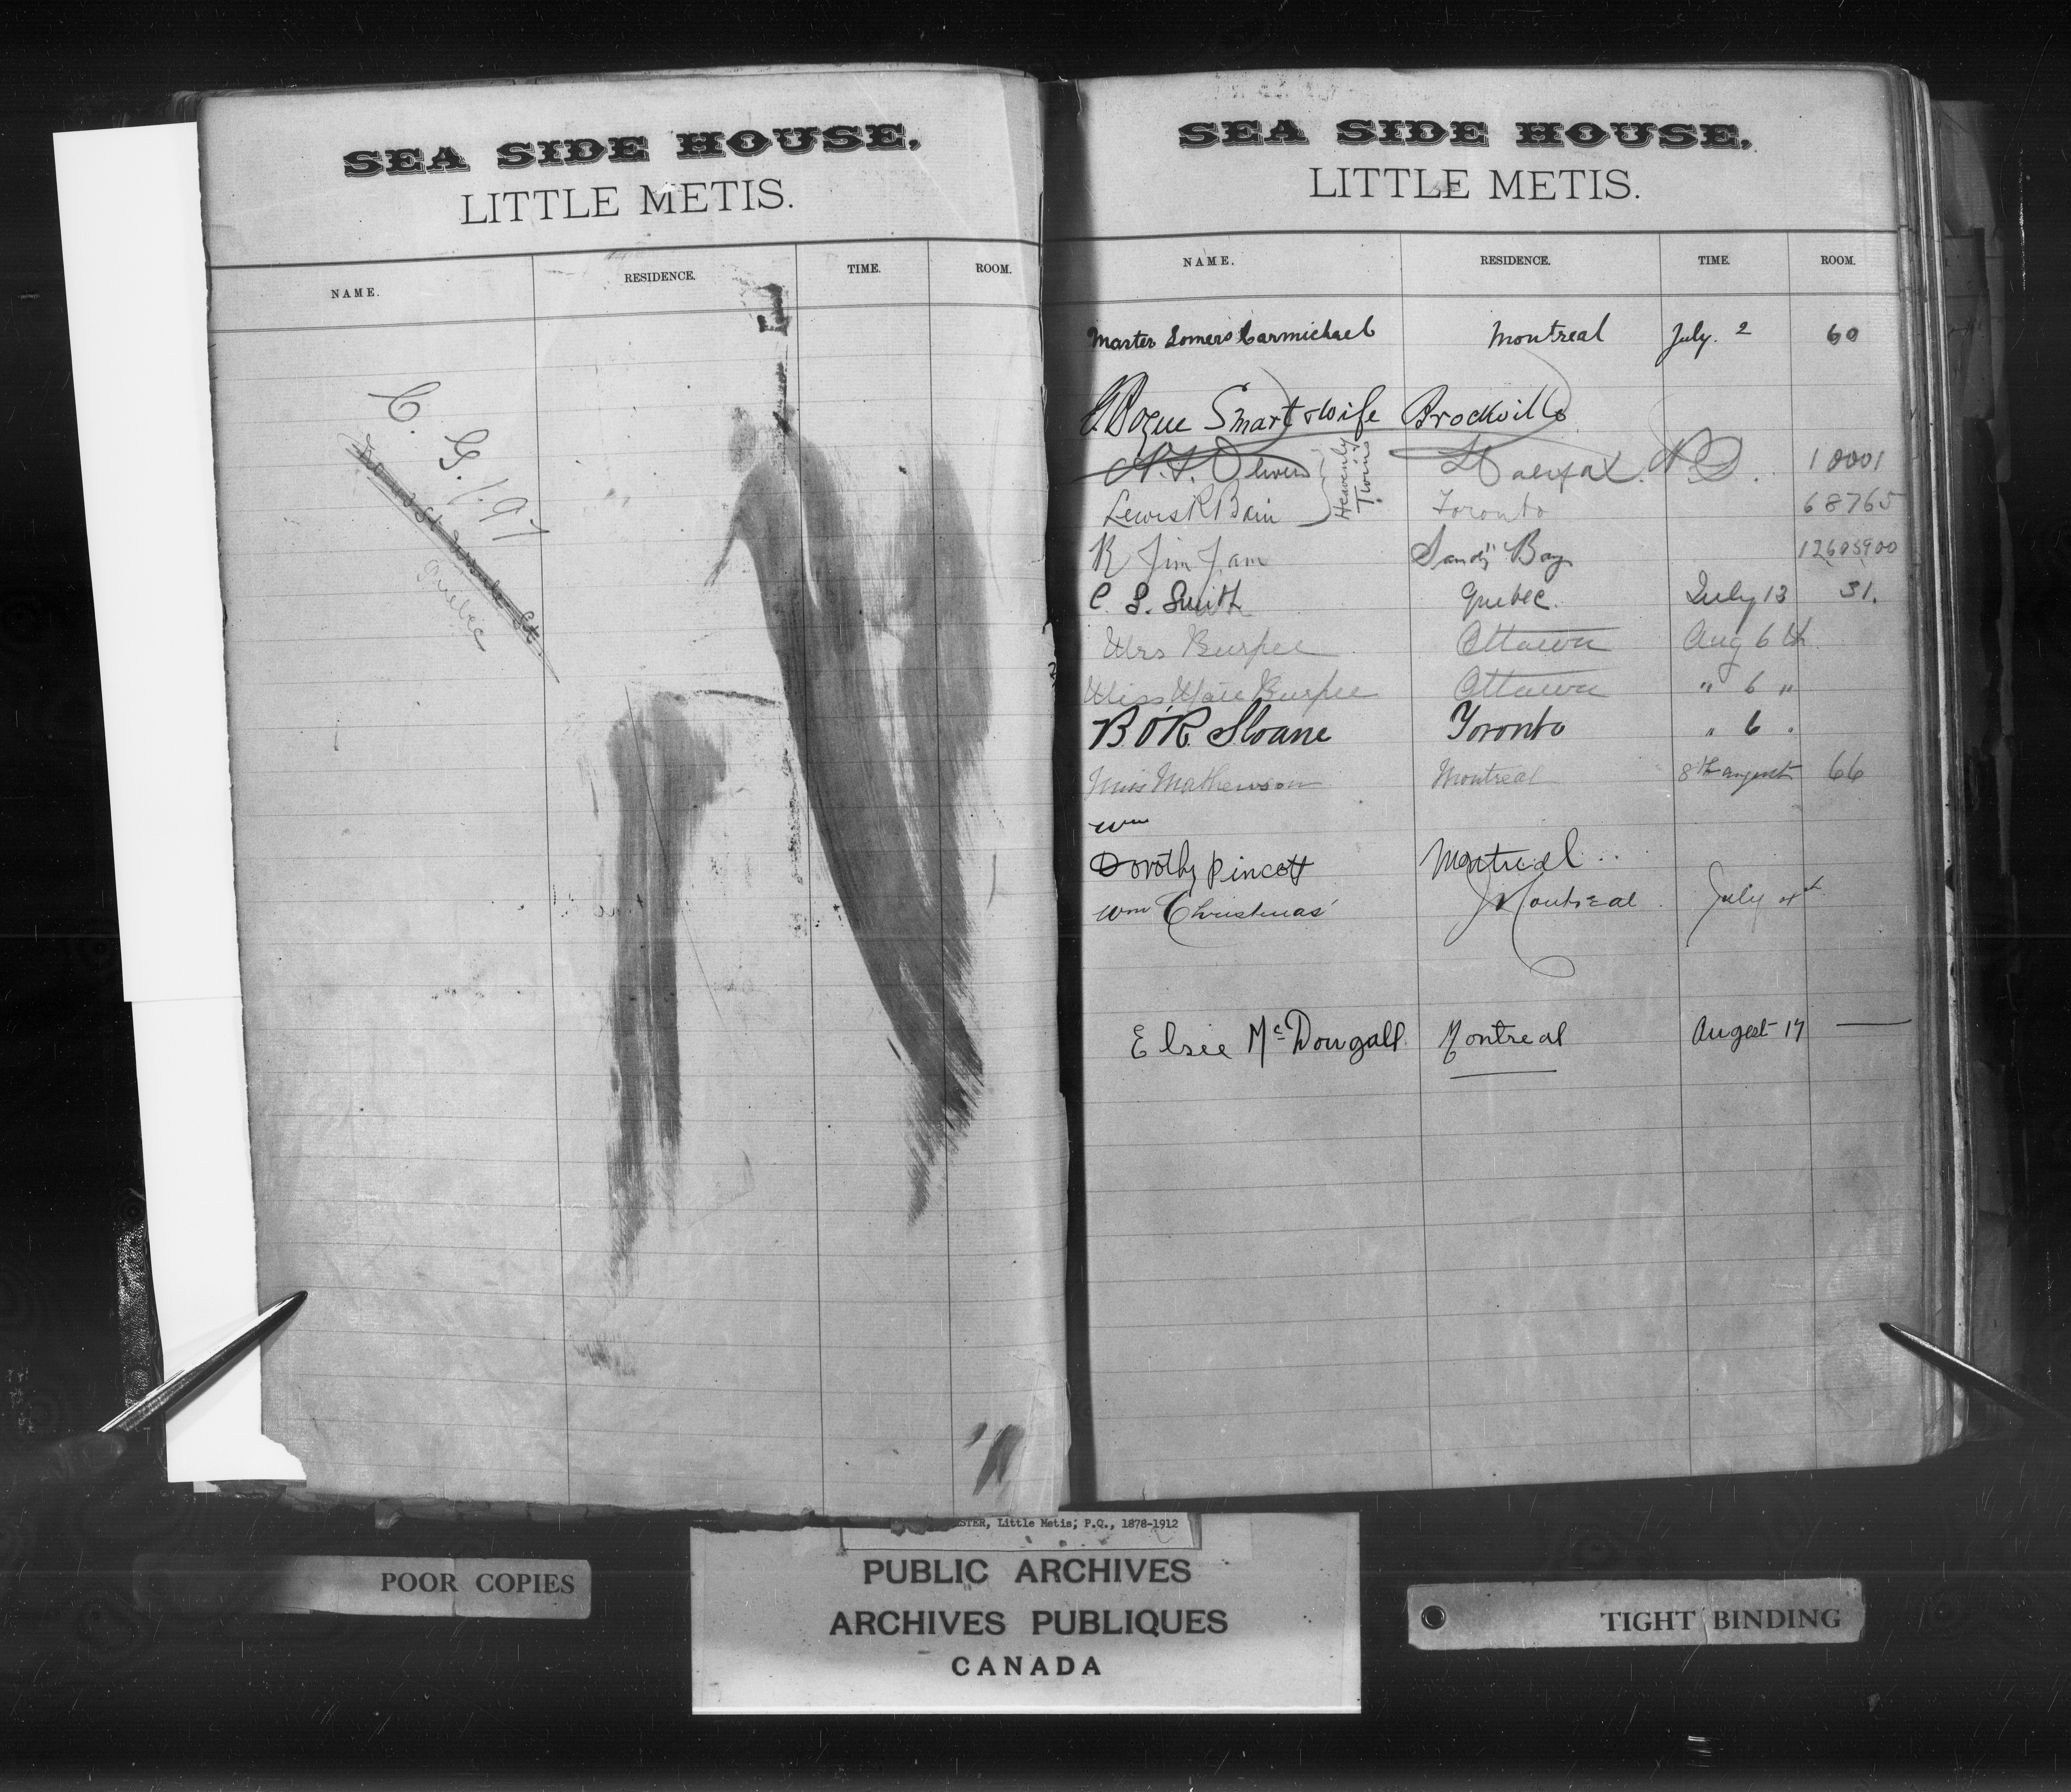 SEA SIDE HOUSE,
LITTLE METIS.
NAME. RESIDENCE. TIME. ROOM.
C. G. 1.97
St
Quebec
SEA SIDE HOUSE,
LITTLE METIS.
NAME. RESIDENCE. TIME. ROOM.
Master Somers Carmichael Montreal July. 2 60
Bogue Smart & wife Brockville
Oliver Halifax. N.S. 10001
Lewis R Bain Toronto 68765
Heavenly Twins
R Jim Jam Sandy Bay 12605900
C. S. Smith Quebec. July 13 31.
Mrs Burpee Ottawa Aug 6th
Miss Burpee Ottawa " 6 "
B. O'R. Sloane Toronto " 6 "
Miss Mathewson Montreal 8th august 66
Wm
Dorothy Pincott Montreal
Wm Christmas Montreal. July 4th
Elsie McDougall Montreal August 17
STER, Little Metis; P.Q., 1878-1912
PUBLIC ARCHIVES
ARCHIVES PUBLIQUES
CANADA
POOR COPIES
TIGHT BINDING